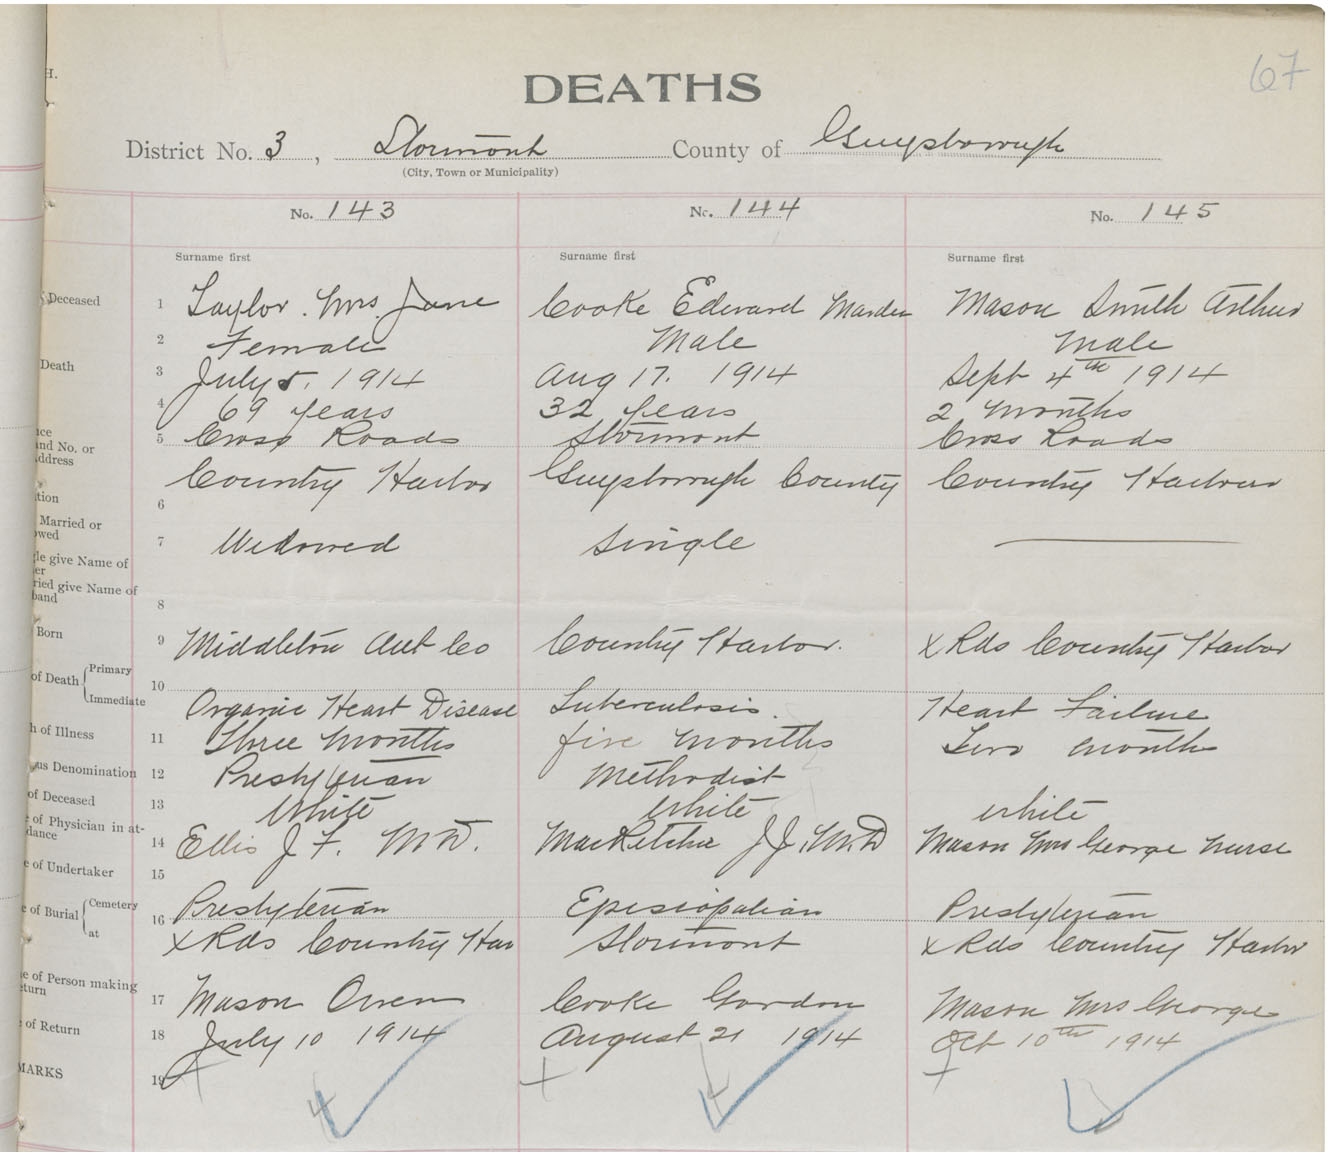 H.
67
DEATHS
District No. 3, Stormont County of Guysborough
(City, Town or Municipality)
No. 143 No. 144 No. 145
Surname first Surname first Surname first
Deceased 1 Taylor. Mrs. Jane Cooke Edward Marden Mason Smith Arthur
2 Female Male Male
Death 3 July 5. 1914 Aug 17. 1914 Sept 4th 1914
4 69 years 32 years 2 months
nce
and No. or 5 Cross Roads Stormont Cross Roads
Address
Country Harbor Guysborough County Country Harbour
tion 6
Married or
owed 7 Widowed Single
gle give Name of
er
ried give Name of
band 8
Born 9 Middleton Ant Co Country Harbor. x Rds Country Harbor
of Death { Primary
Immediate 10 Organic Heart Disease Tuberculosis. Heart Failure
h of Illness 11 Three months five months Two months
us Denomination 12 Presbyterian Methodist
of Deceased 13 White White White
e of Physician in at-
dance 14 Ellis J F. M.D. J.J. M.D Mason Mrs George Nurse
e of Undertaker 15
e of Burial { Cemetery 16 Presbyterian Episiopalian Presbyterian
at x Rds Country Har Stormont x Rds Country Harbor
e of Person making
eturn 17 Mason Owen Cooke Gordon Mason Mrs George
of Return 18 July 10 1914 August 21 1914 Oct 10th 1914
MARKS 19